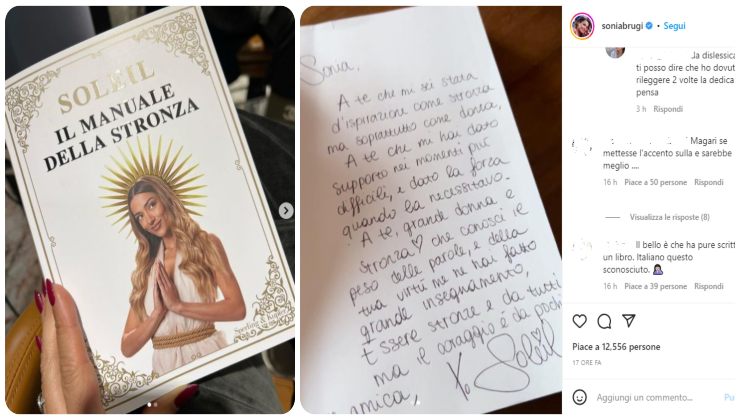 SOLEIL
IL MANUALE
DELLA STRONZA
Sperling & Kupfer
Sonia,
A te che mi sei stata
d'ispirazione come stronza
ma soprattutto come donna,
A te che mi hai dato
supporto nei momenti più
difficili, e dato la forza
quando la necessitavo.
A te, grande donna e
stronza ♡ che conosci il
peso delle parole, e della
tua virtù me ne hai fatto
grande insegnamento,
Essere stronze e da tutti
ma il coraggio è da pochi
amica,
Soleil
soniabrugi • Segui
dislessica
ti posso dire che ho dovut
rileggere 2 volte la dedica
pensa
3 h Rispondi
Magari se
mettesse l'accento sulla e sarebbe
meglio ....
16 h Piace a 50 persone Rispondi
Visualizza le risposte (8)
Il bello è che ha pure scritt
un libro. Italiano questo
sconosciuto. 🤦🏻‍♀️
16 h Piace a 39 persone Rispondi
Piace a 12,556 persone
17 ORE FA
Aggiungi un commento...
Pu